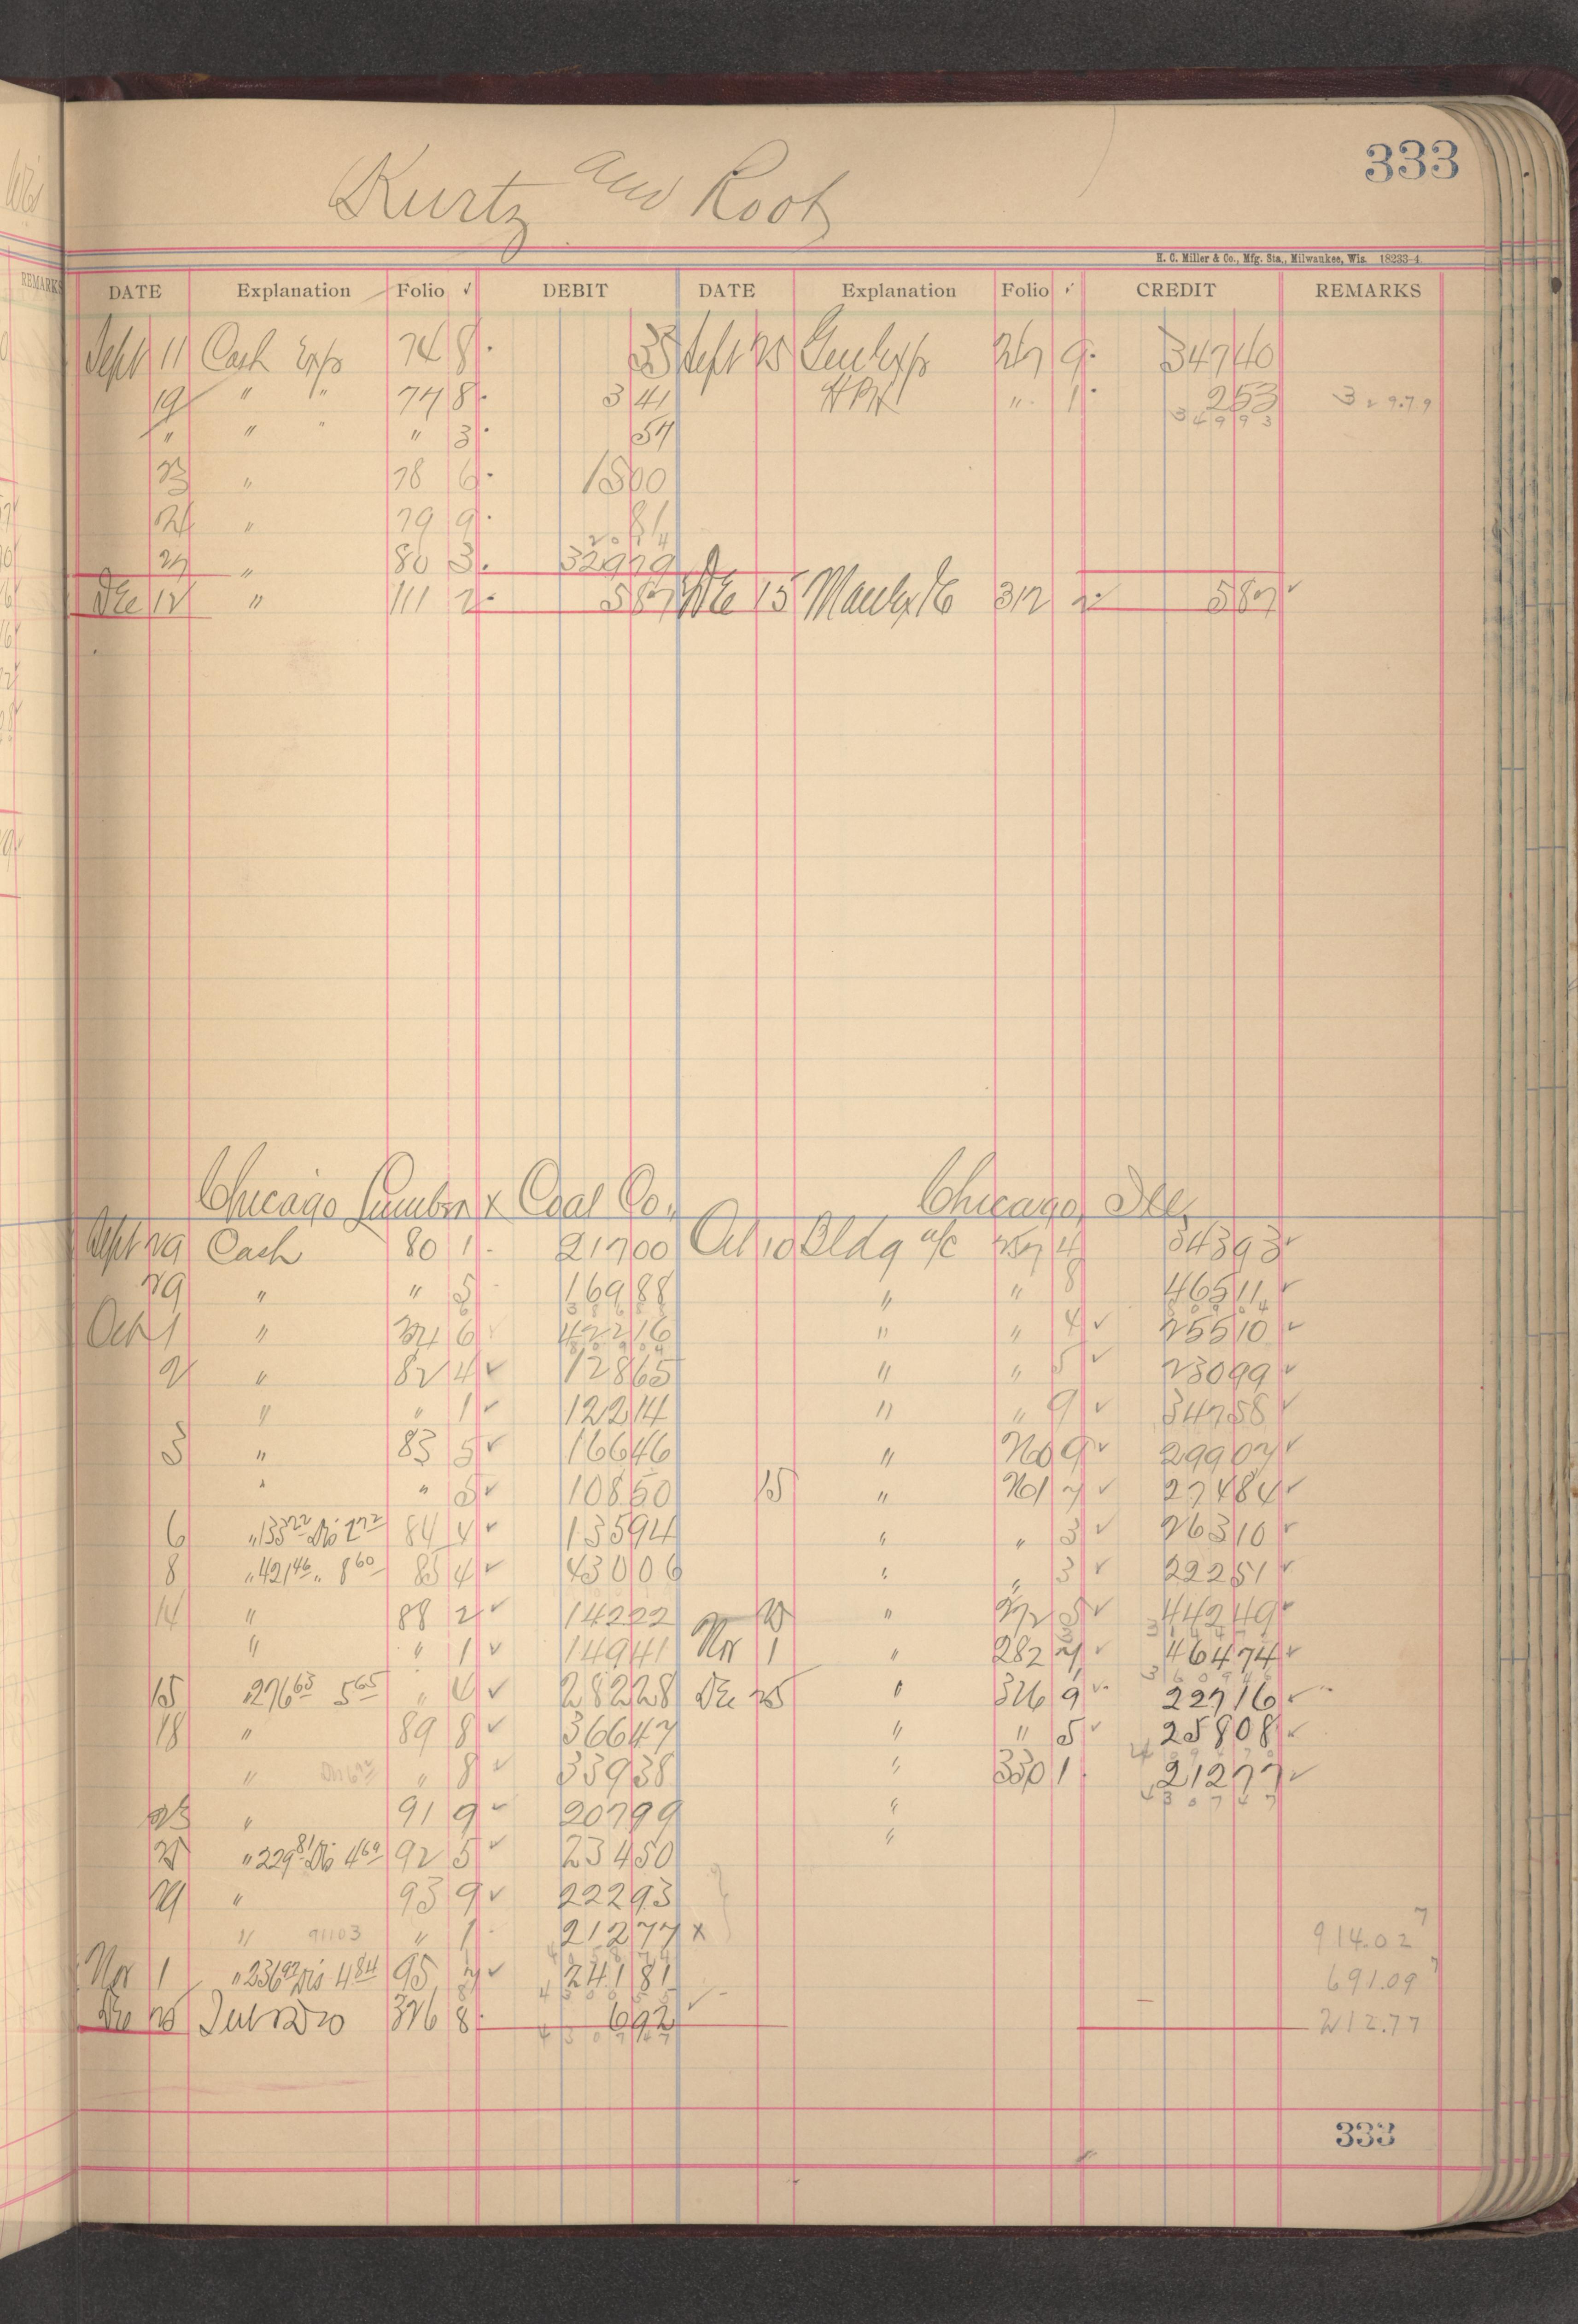 333
Kurtz and Root
H. C. Miller & Co., Mfg. Sta., Milwaukee, Wis. 18233-4.
DATE Explanation Folio ✓ DEBIT DATE Explanation Folio ✓ CREDIT REMARKS
Sept 11 Cash Exp 74 8 35 Sept 25 Genl Exp 267 9 347 40
19 " " 77 8 3 41 " 1 2 53 3 2 9.79
" " " " 3 57 3 4 9 9 3
23 " 78 6 15 00
24 " 79 9 81
20 14
27 " 80 3 329 79
Dec 12 " 111 2 5 87 Dec 15 312 2 5 87 ✓
Chicago Lumber & Coal Co., Chicago, Ill.
Sept 29 Cash 80 1 217 00 Oct 10 Bldg a/c 257 4 343 93 ✓
29 " " 5 169 88 " " 8 465 11 ✓
Oct 1 " 6 422 16 " " 4 ✓ 255 10 ✓
2 " 82 4 ✓ 128 65 " " 5 ✓ 230 99 ✓
" " 1 ✓ 122 14 " " 9 ✓ 347 58 ✓
3 " 83 5 ✓ 166 46 " 260 9 ✓ 299 07 ✓
" " 5 ✓ 108 50 15 " 261 7 ✓ 274 84 ✓
6 " 133 22 Dis 2 72 84 4 ✓ 135 94 " " 3 ✓ 263 10 ✓
8 " 421 46 " 8 60 85 4 ✓ 430 06 " " 3 ✓ 222 51 ✓
14 " 88 2 ✓ 142 22 25 " 272 5 ✓ 442 49 ✓
" " 1 ✓ 149 41 Nov 1 " 282 7 ✓ 464 74 ✓
15 " 276 63 5 65 " 6 ✓ 282 28 Dec 25 " 326 9 ✓ 227 16 ✓
18 " 89 8 ✓ 366 47 " " 5 ✓ 258 08 ✓
" " 8 ✓ 339 38 " 330 1 212 77 ✓
23 " 91 9 ✓ 207 99 "
25 " 229 81 Dis 4 69 92 5 ✓ 234 50 "
29 " 93 9 ✓ 222 93
" 91103 " 1 212 77 x 914.02
Nov 1 " 236 97 Dis 4 84 95 7 ✓ 241 81 691.09
Dec 25 326 8 6 92 ✓ 212.77
4 3 0 7 4 7
333